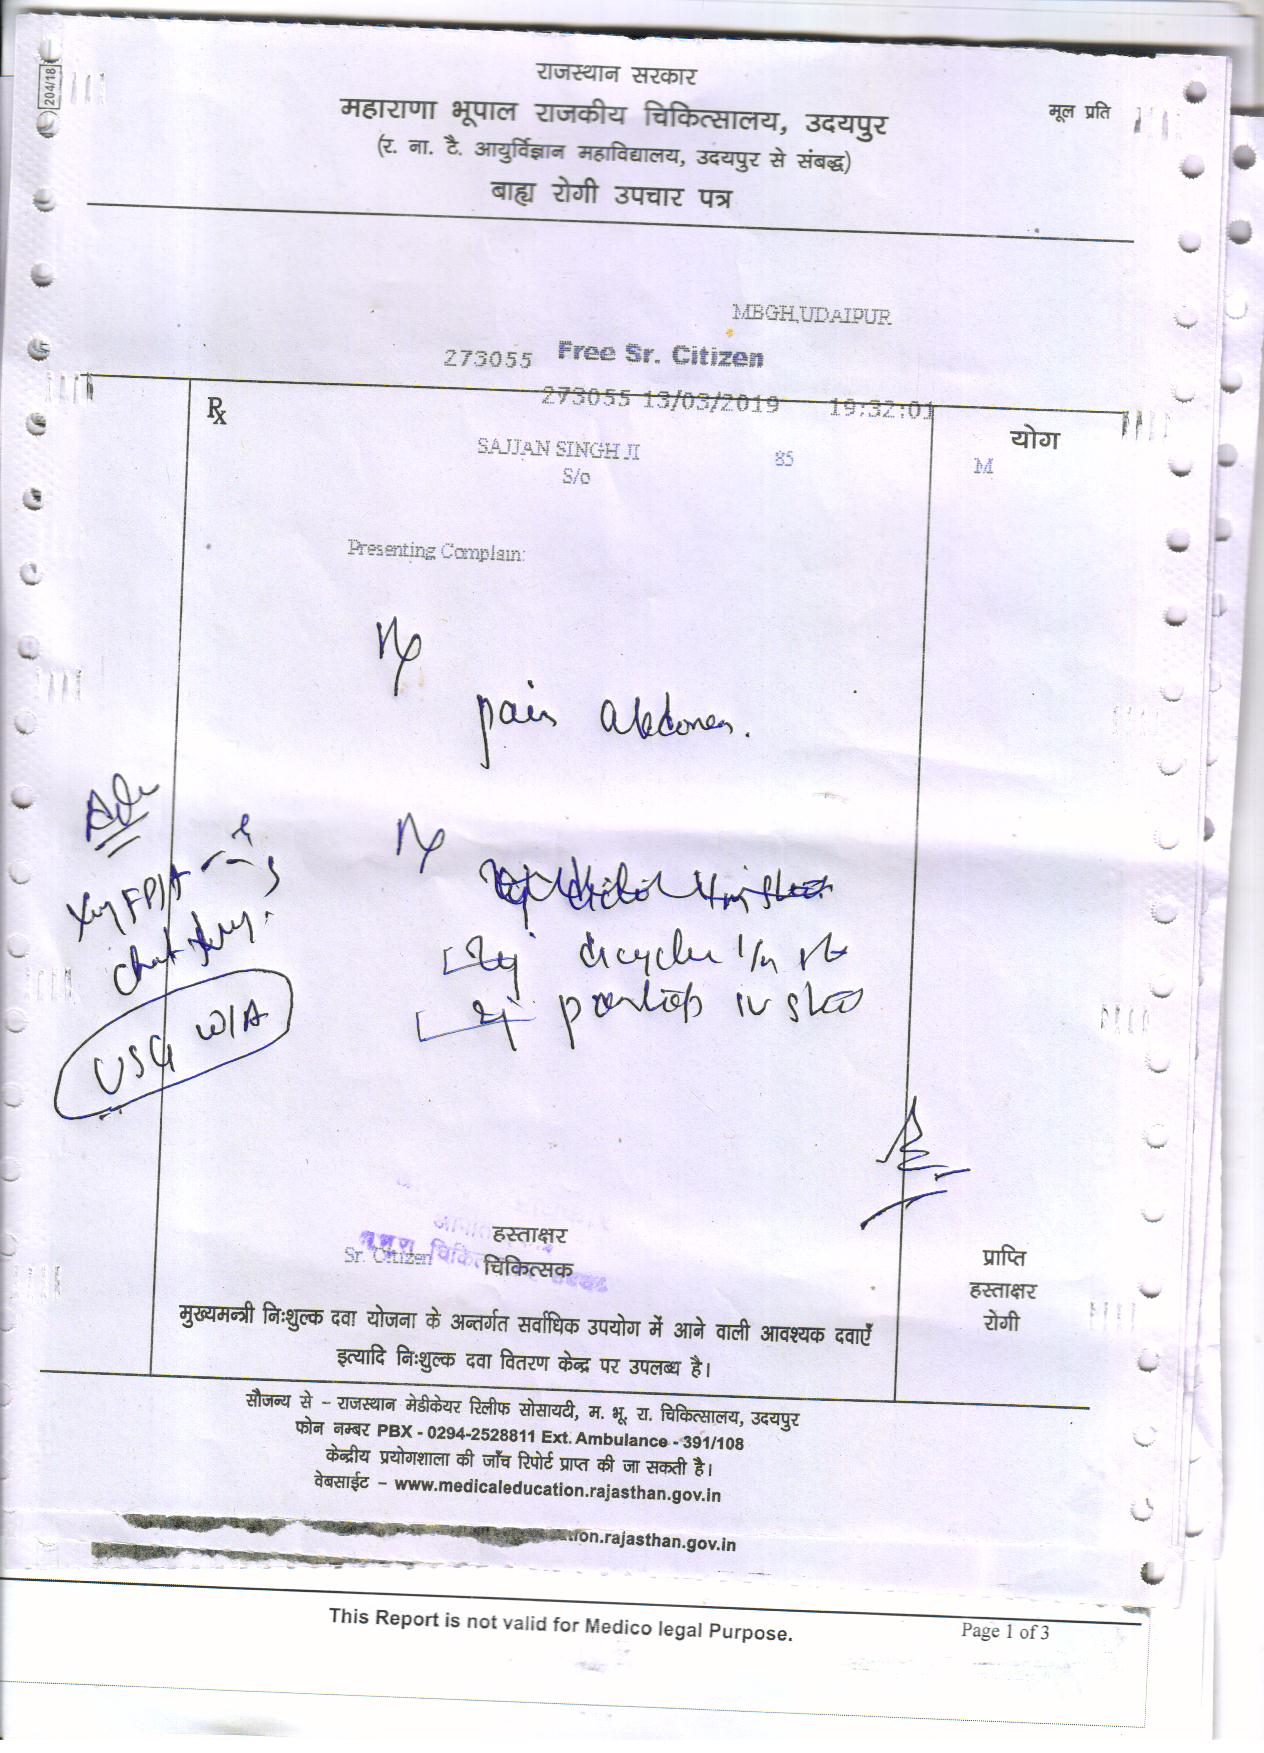 204/18
राजस्थान सरकार
महाराणा भूपाल राजकीय चिकित्सालय, उदयपुर
मूल प्रति
(र. ना. टै. आयुर्विज्ञान महाविद्यालय, उदयपुर से संबद्ध)
बाह्य रोगी उपचार पत्र
MBGH,UDAIPUR
273055 Free Sr. Citizen
273055 13/03/2019 19:32:01
Rx
योग
SAJJAN SINGH JI 85 M
S/o
Presenting Complain:
pain abdomen.
Adv
Xray FP/A
chest Xray
USG W/A
Inj dicyclo 1/m
Inj pantop iv stat
हस्ताक्षर
Sr. Citizen चिकित्सक
प्राप्ति
हस्ताक्षर
रोगी
मुख्यमन्त्री निःशुल्क दवा योजना के अन्तर्गत सर्वाधिक उपयोग में आने वाली आवश्यक दवाएँ
इत्यादि निःशुल्क दवा वितरण केन्द्र पर उपलब्ध है।
सौजन्य से – राजस्थान मेडीकेयर रिलीफ सोसायटी, म. भू. रा. चिकित्सालय, उदयपुर
फोन नम्बर PBX - 0294-2528811 Ext. Ambulance - 391/108
केन्द्रीय प्रयोगशाला की जाँच रिपोर्ट प्राप्त की जा सकती है।
वेबसाईट – www.medicaleducation.rajasthan.gov.in
ion.rajasthan.gov.in
This Report is not valid for Medico legal Purpose.
Page 1 of 3